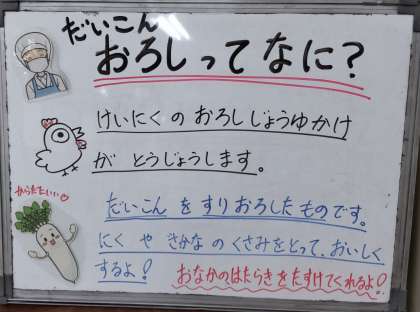 だいこん
おろしってなに?
けいにく の おろしじょうゆかけ
が とうじょうします。
からだにいい♡
だいこん を すりおろしたものです。
にく や さかな の くさみをとって、おいしく
するよ!
おなかのはたらきをたすけてくれるよ!